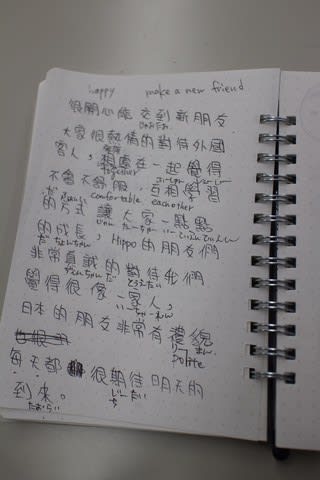 happy make a new friend
很開心能 交到新朋友
じゃおだお
大家很熱情的對待外國
客人，相處在一起覺得
together
不會不舒服，互相學習
comfortable eachother
的方式 讓大家一點點
的成長，Hippo的朋友們
非常真誠的對待我們
覺得很像一家人，
日本的朋友非常有禮貌
polite
每天都 很期待明天的
到來。